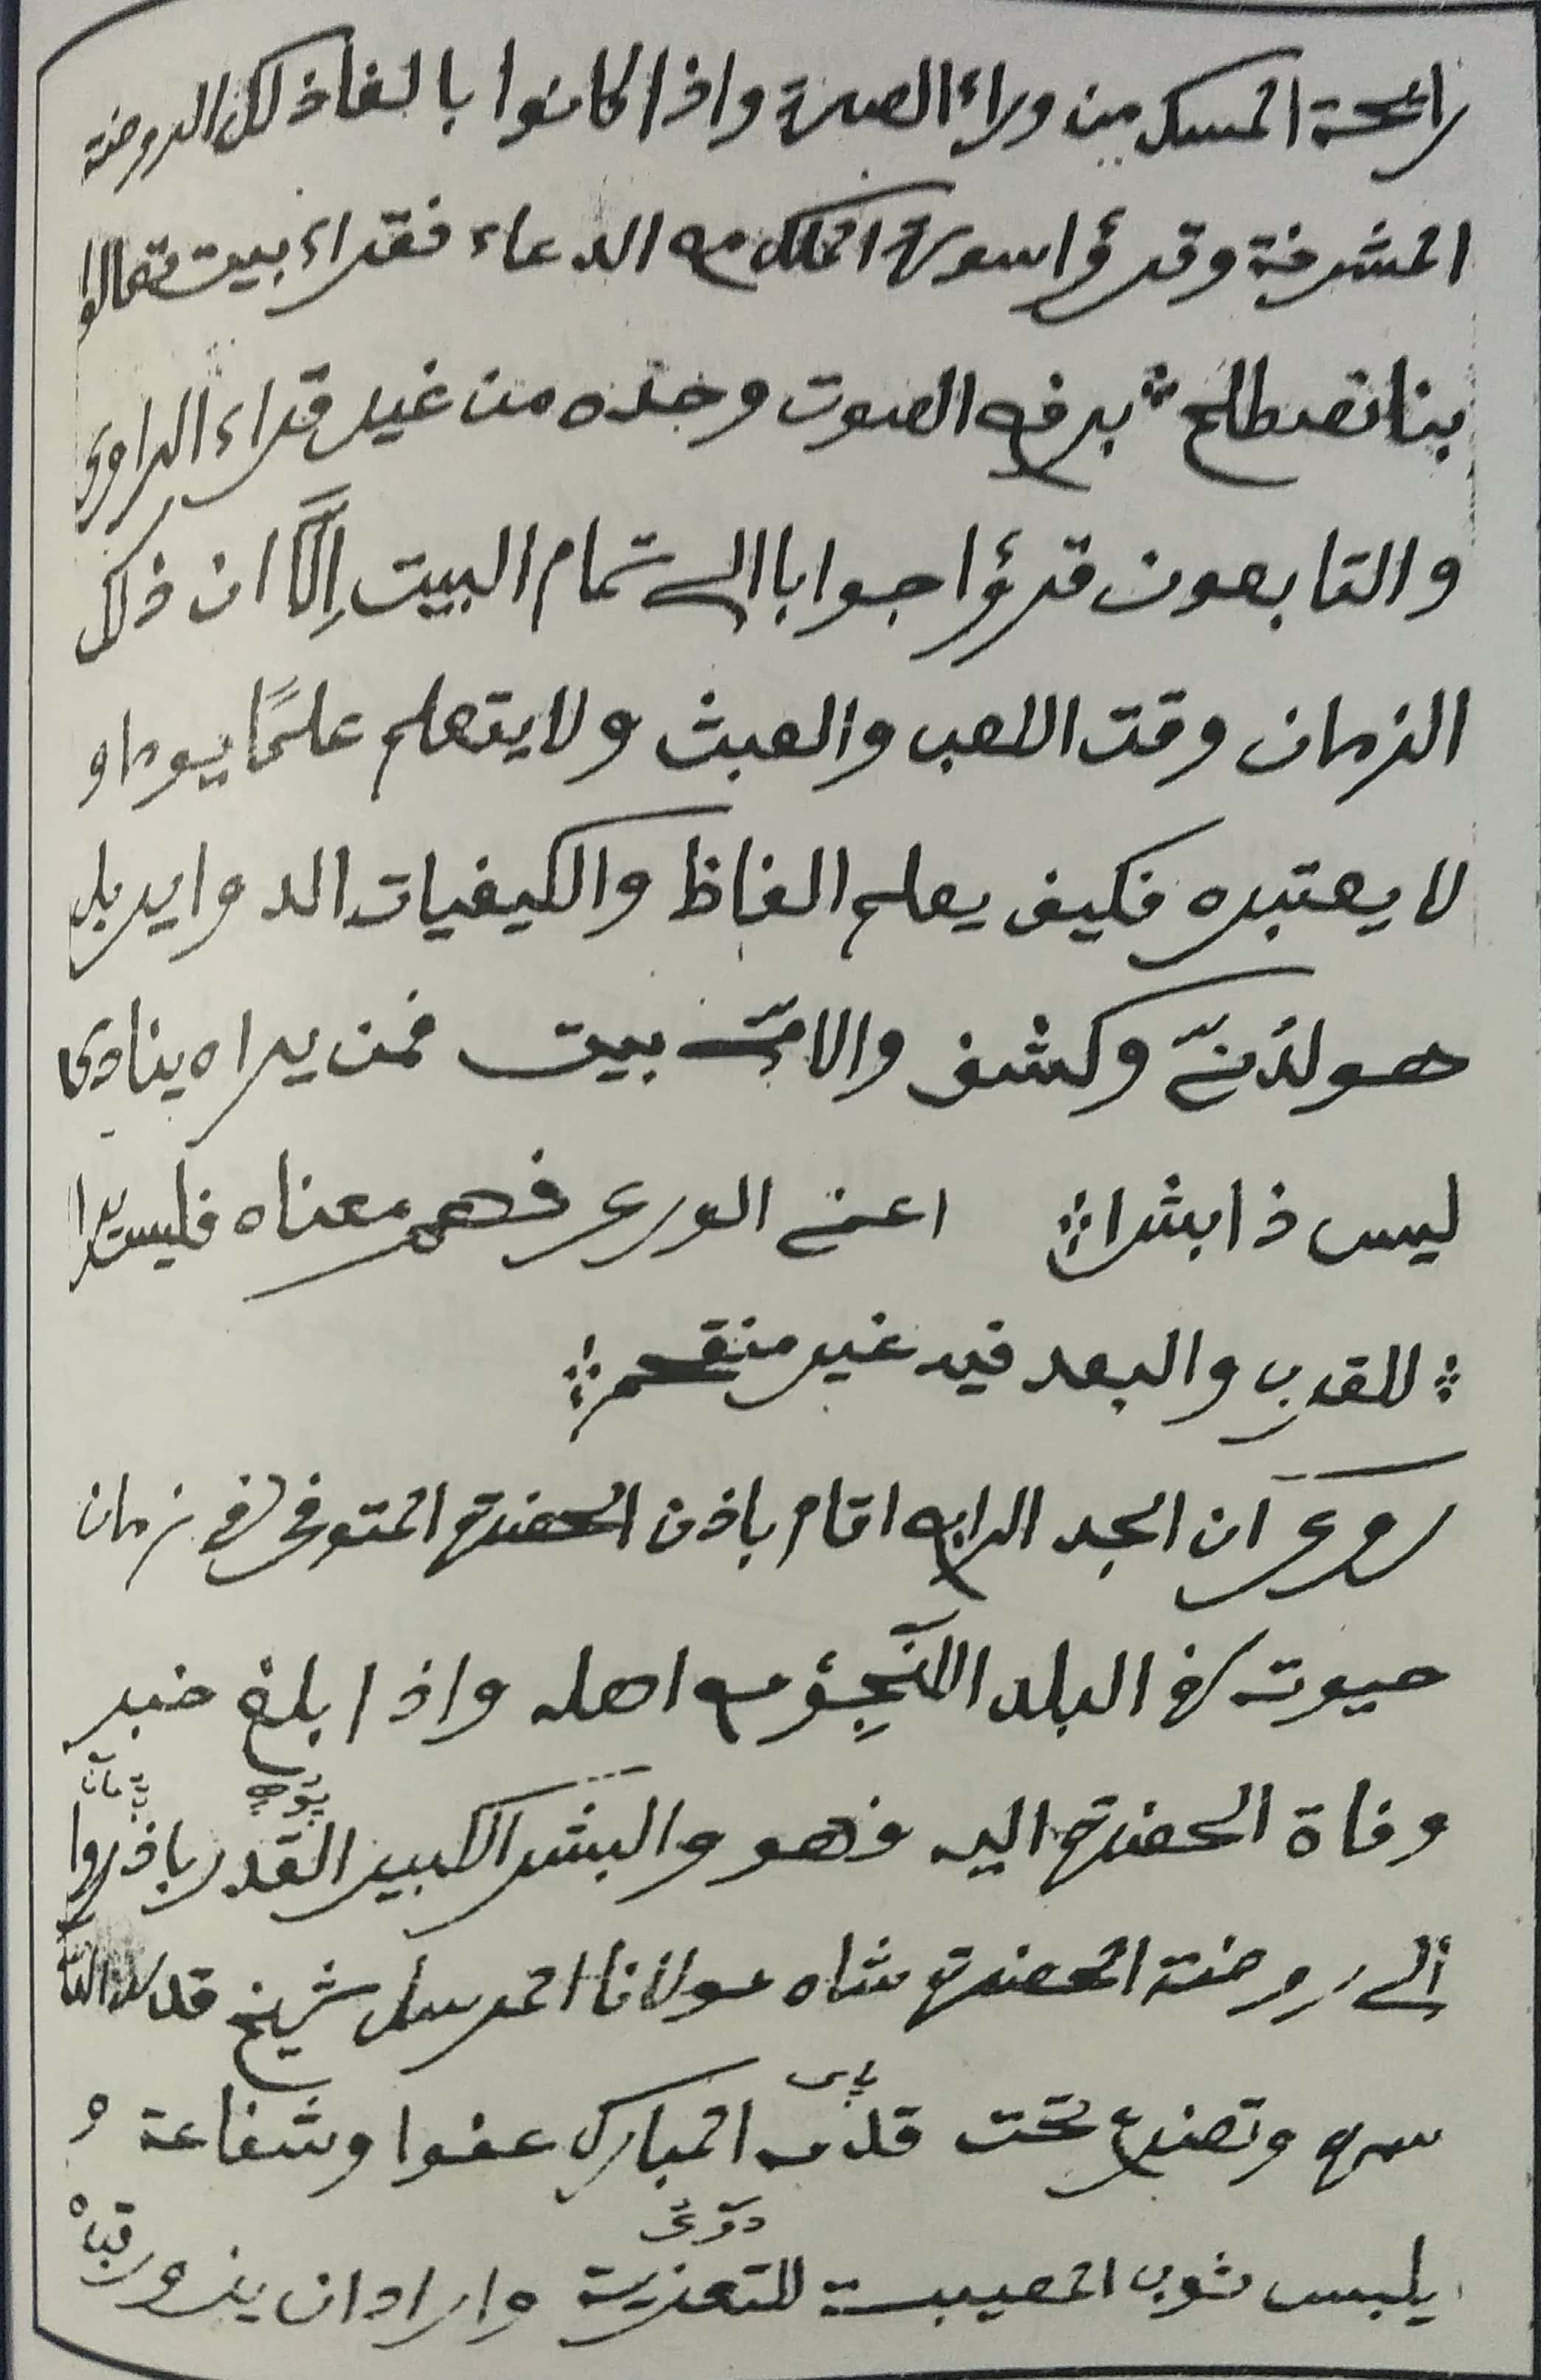 رائحة المسك من وراء الصرة واذا كانوا بالغا ذلك الروضة
المشرفة وقرؤا سورة الملك مع الدعاء فقراء بيت تعالوا
بنا نصطلح برفع الصوت وحده من غير قراء الراوى
والتابعون قرؤا جوابا الى تمام البيت إلّا ان ذلك
الزمان وقت اللعب والعبث ولا يتعلم علمًا يوما و
لا يعتبره فكيف يعلم الفاظ والكيفيات الدواير بل
هو لدُنّي وكشف والامّي بيت فمن يراه ينادى
ليس ذا بشرا اعى الورى فهم معناه فليس يرا
للقرب والبعد فيه غير منفحم
روى ان الجد الرابع اقام باذن الحضرة المتوفى فى زمان
حيوته فى البلد مع اهله واذا بلغ خبر
وفاة الحضرة اليه فهو والبشر الكبير القدر بادروا
الى روضة الحضرة شاه مولانا احمد شيخ قدس الله
سره وتضرع تحت قدمه المبارك عفوا وشفاعة و
ياى
يلبس ثوب المصيبة للتعزية واراد ان يزور قباه